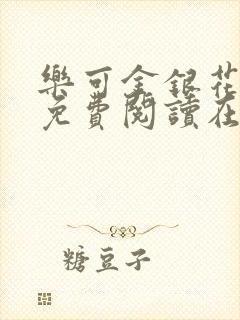 樂可金銀花
免費閱讀在
糖豆子